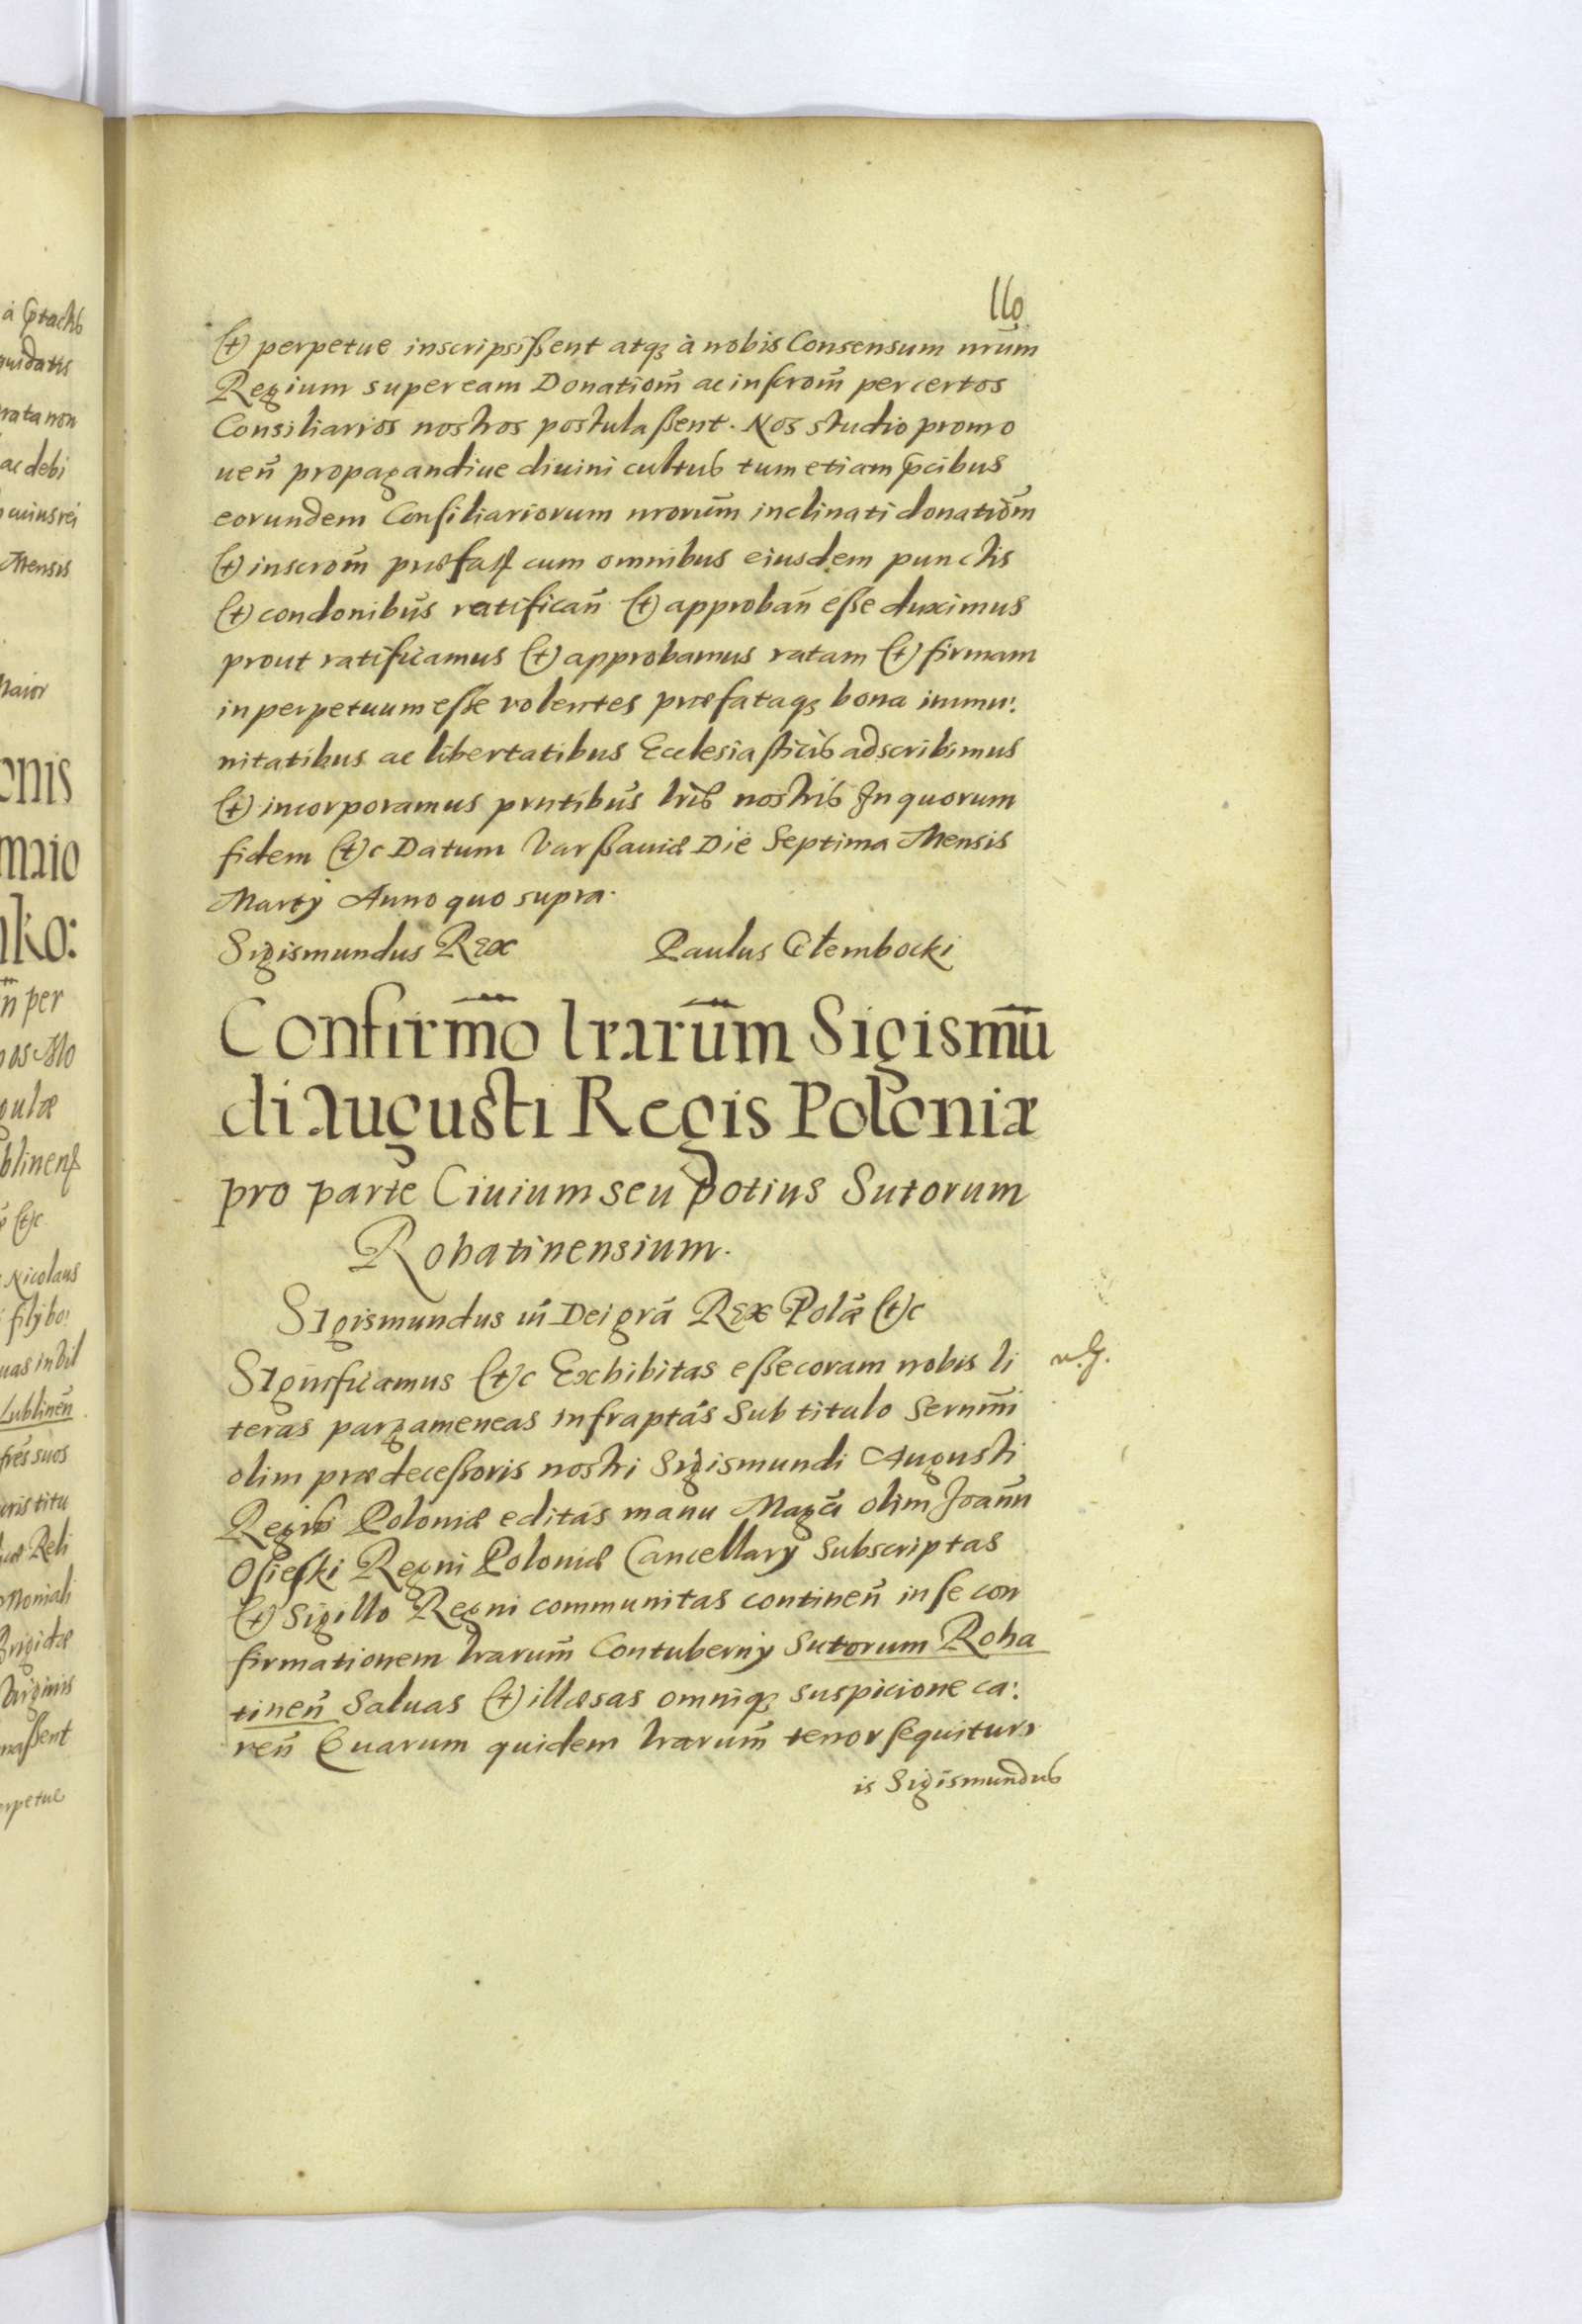 116
(et) perpetue inscripsissent atq3 à nobis Consensum nrūm
Regium super eam Donatiom̄ ac inscrom̄ per certos
Consiliarios nostros postulassent. Nos studio promo
uen̄ propagandiue diuini cultus tum etiam p̄cibus
eorundem Consiliariorum nrorum̄ inclinati donatiōm
(et) inscrom̄ præfat cum omnibus eiusdem punctis
(et) condonibus̄ ratifican̄ (et) approban̄ esse duximus
prout ratificamus (et) approbamus ratam (et) firmam
in perpetuum esse volentes præfataq3 bona immu:
nitatibus ac libertatibus Ecclesiasticis adscribimus
(et) incorporamus prntibus̄ lrīs nostris In quorum
fidem (et)c Datum Varssauiæ Die Septima Mensis
Martÿ Anno quo supra.
Sigismundus Rex Paulus Głembocki
Confirm̄o lrarūm Sigismū
di Augusti Regis Poloniæ
pro parte Ciuium seu potius Sutorum
Rohatinensium.
Sigismundus iii Dei grā Rex Polǣ (et)c
Significamus (et)c Exhibitas esse coram nobis li
teras pargameneas infraptās Sub titulo Sernmī
olim prædecessoris nostri Sigismundi Augusti
Regis Poloniæ editas manu Magcī olim Joann̄
Osieski Regni Poloniæ Cancellarÿ Subscriptas
(et) Sigillo Regni communitas continen̄ in se con
firmationem lrarum̄ Contubernÿ Sutorum Roha
tinen̄ Saluas (et) illæsas omniq3 suspicione ca:
ren̄ Quarum quidem lrarum̄ tenor sequitur
is Sigismundus